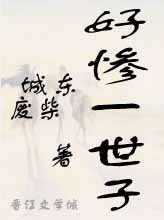 好惨一世子
城东
废柴
著
晋江文学城